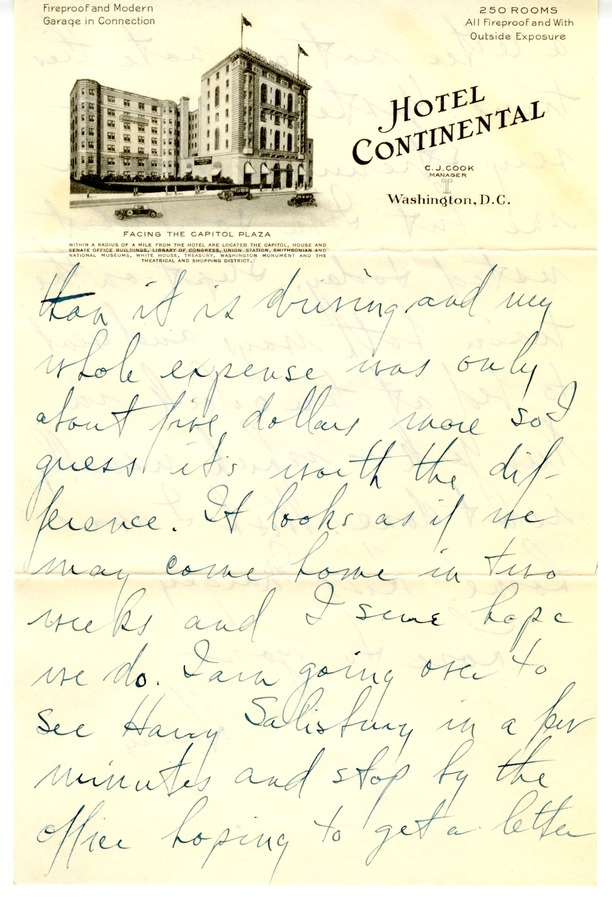 Fireproof and Modern
Garage in Connection
250 ROOMS
All Fireproof and With
Outside Exposure
HOTEL
CONTINENTAL
C. J. COOK
MANAGER
Washington, D.C.
FACING THE CAPITOL PLAZA
WITHIN A RADIUS OF A MILE FROM THE HOTEL ARE LOCATED THE CAPITOL, HOUSE AND
SENATE OFFICE BUILDINGS, LIBRARY OF CONGRESS, UNION STATION, SMITHSONIAN AND
NATIONAL MUSEUMS, WHITE HOUSE, TREASURY, WASHINGTON MONUMENT AND THE
THEATRICAL AND SHOPPING DISTRICT.
than it is driving and my
whole expense was only
about five dollars more so I
guess it's worth the dif-
ference. It looks as if we
may come home in two
weeks and I sure hope
we do. I am going over to
see Harry Salisbury in a few
minutes and stop by the
office hoping to get a letter